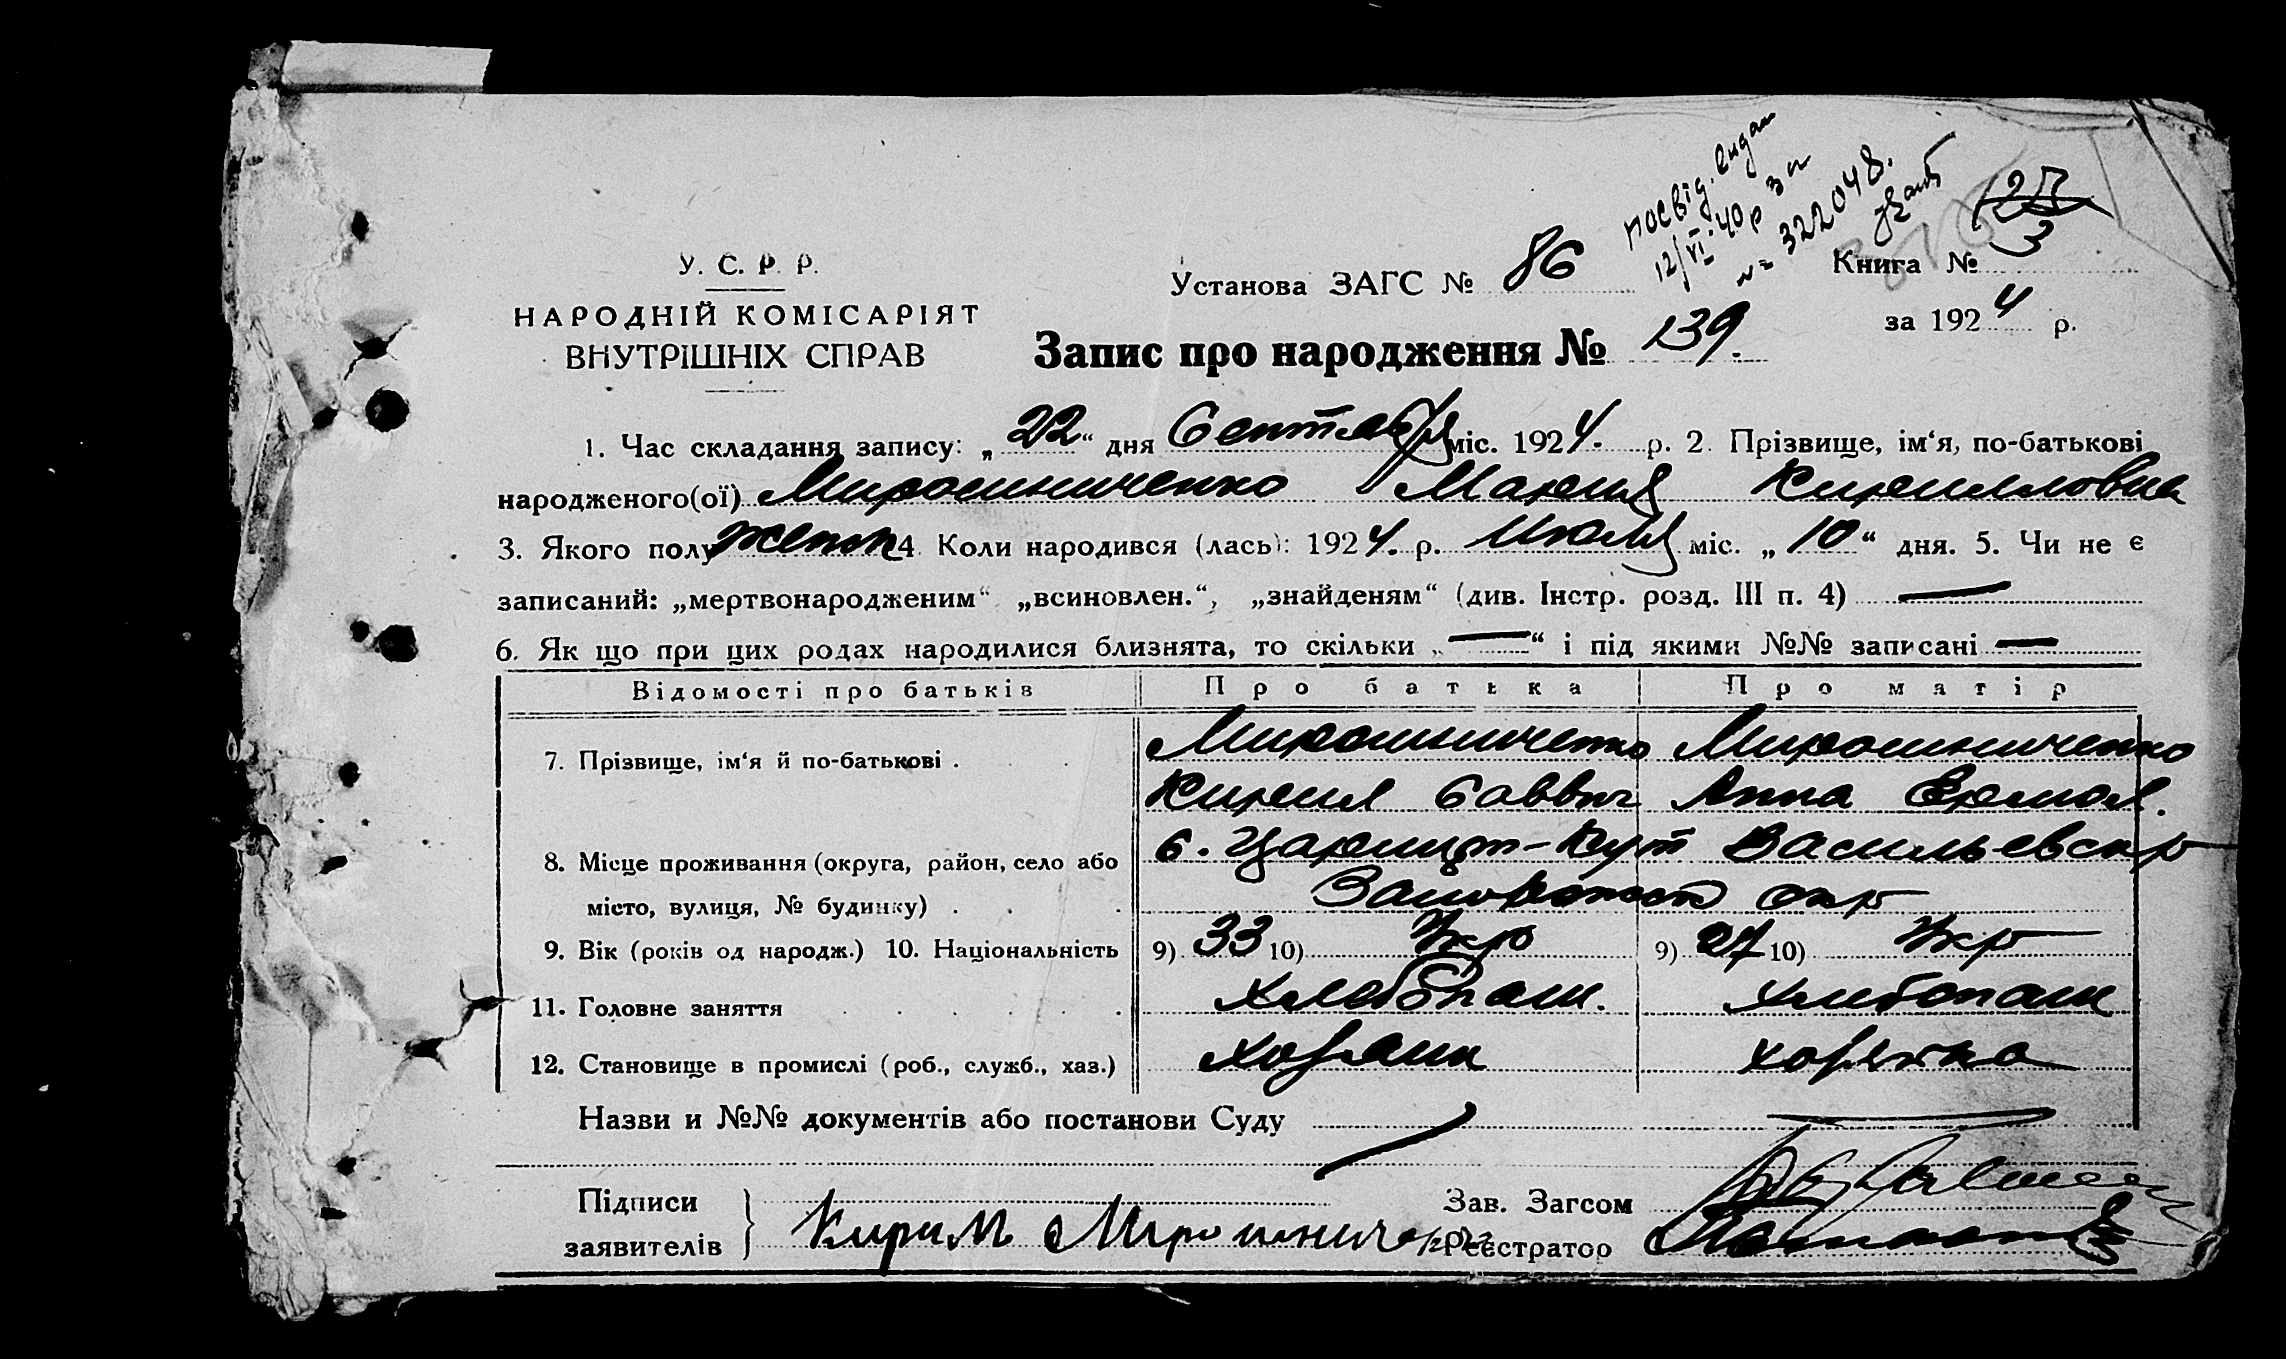 посвід. видан
12/VI-40р за
№ 322048.
3
У. С. Р. Р.
НАРОДНІЙ КОМІСАРІЯТ
ВНУТРІШНІХ СПРАВ
Установа ЗАГС № 86
Книга №
за 1924 р.
Запис про народження № 139.
1. Час складання запису: „22“ дня Сентября міс. 1924. р. 2. Прізвище, ім‘я, по-батькові
народженого(ої) Мирошниченко Мария Кирилловна
3. Якого полу женск 4. Коли народився (лась): 1924. р. Июля міс. „10“ дня. 5. Чи не є
записаний: „мертвонародженим“ „всиновлен.“, „знайденям“ (див. Інстр. розд. III п. 4) —
6. Як що при цих родах народилися близнята, то скільки „—“ і під якими №№ записані —
Відомості про батьків Про батька Про матір
7. Прізвище, ім‘я й по-батькові . Мирошниченко Мирошниченко
Кирилл Саввич Анна Ермол.
8. Місце проживання (округа, район, село або с. Царицын-Кут Васильевск р
місто, вулиця, № будинку) . . . Запорожск окр
9. Вік (років од народж.) 10. Національність 9) 33 10) Укр 9) 27 10) Укр
11. Головне заняття . . . . . . Хлебопаш. Хлебопаш
12. Становище в промислі (роб., служб., хаз.) хозяин хозяйка
Назви и №№ документів або постанови Суду
Підписи
заявителів } Кирил Мирошниченко
Зав. Загсом
Реєстратор